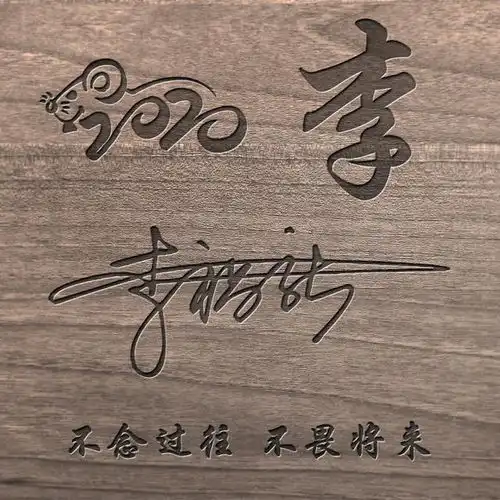 2020 李
李
不念过往 不畏将来